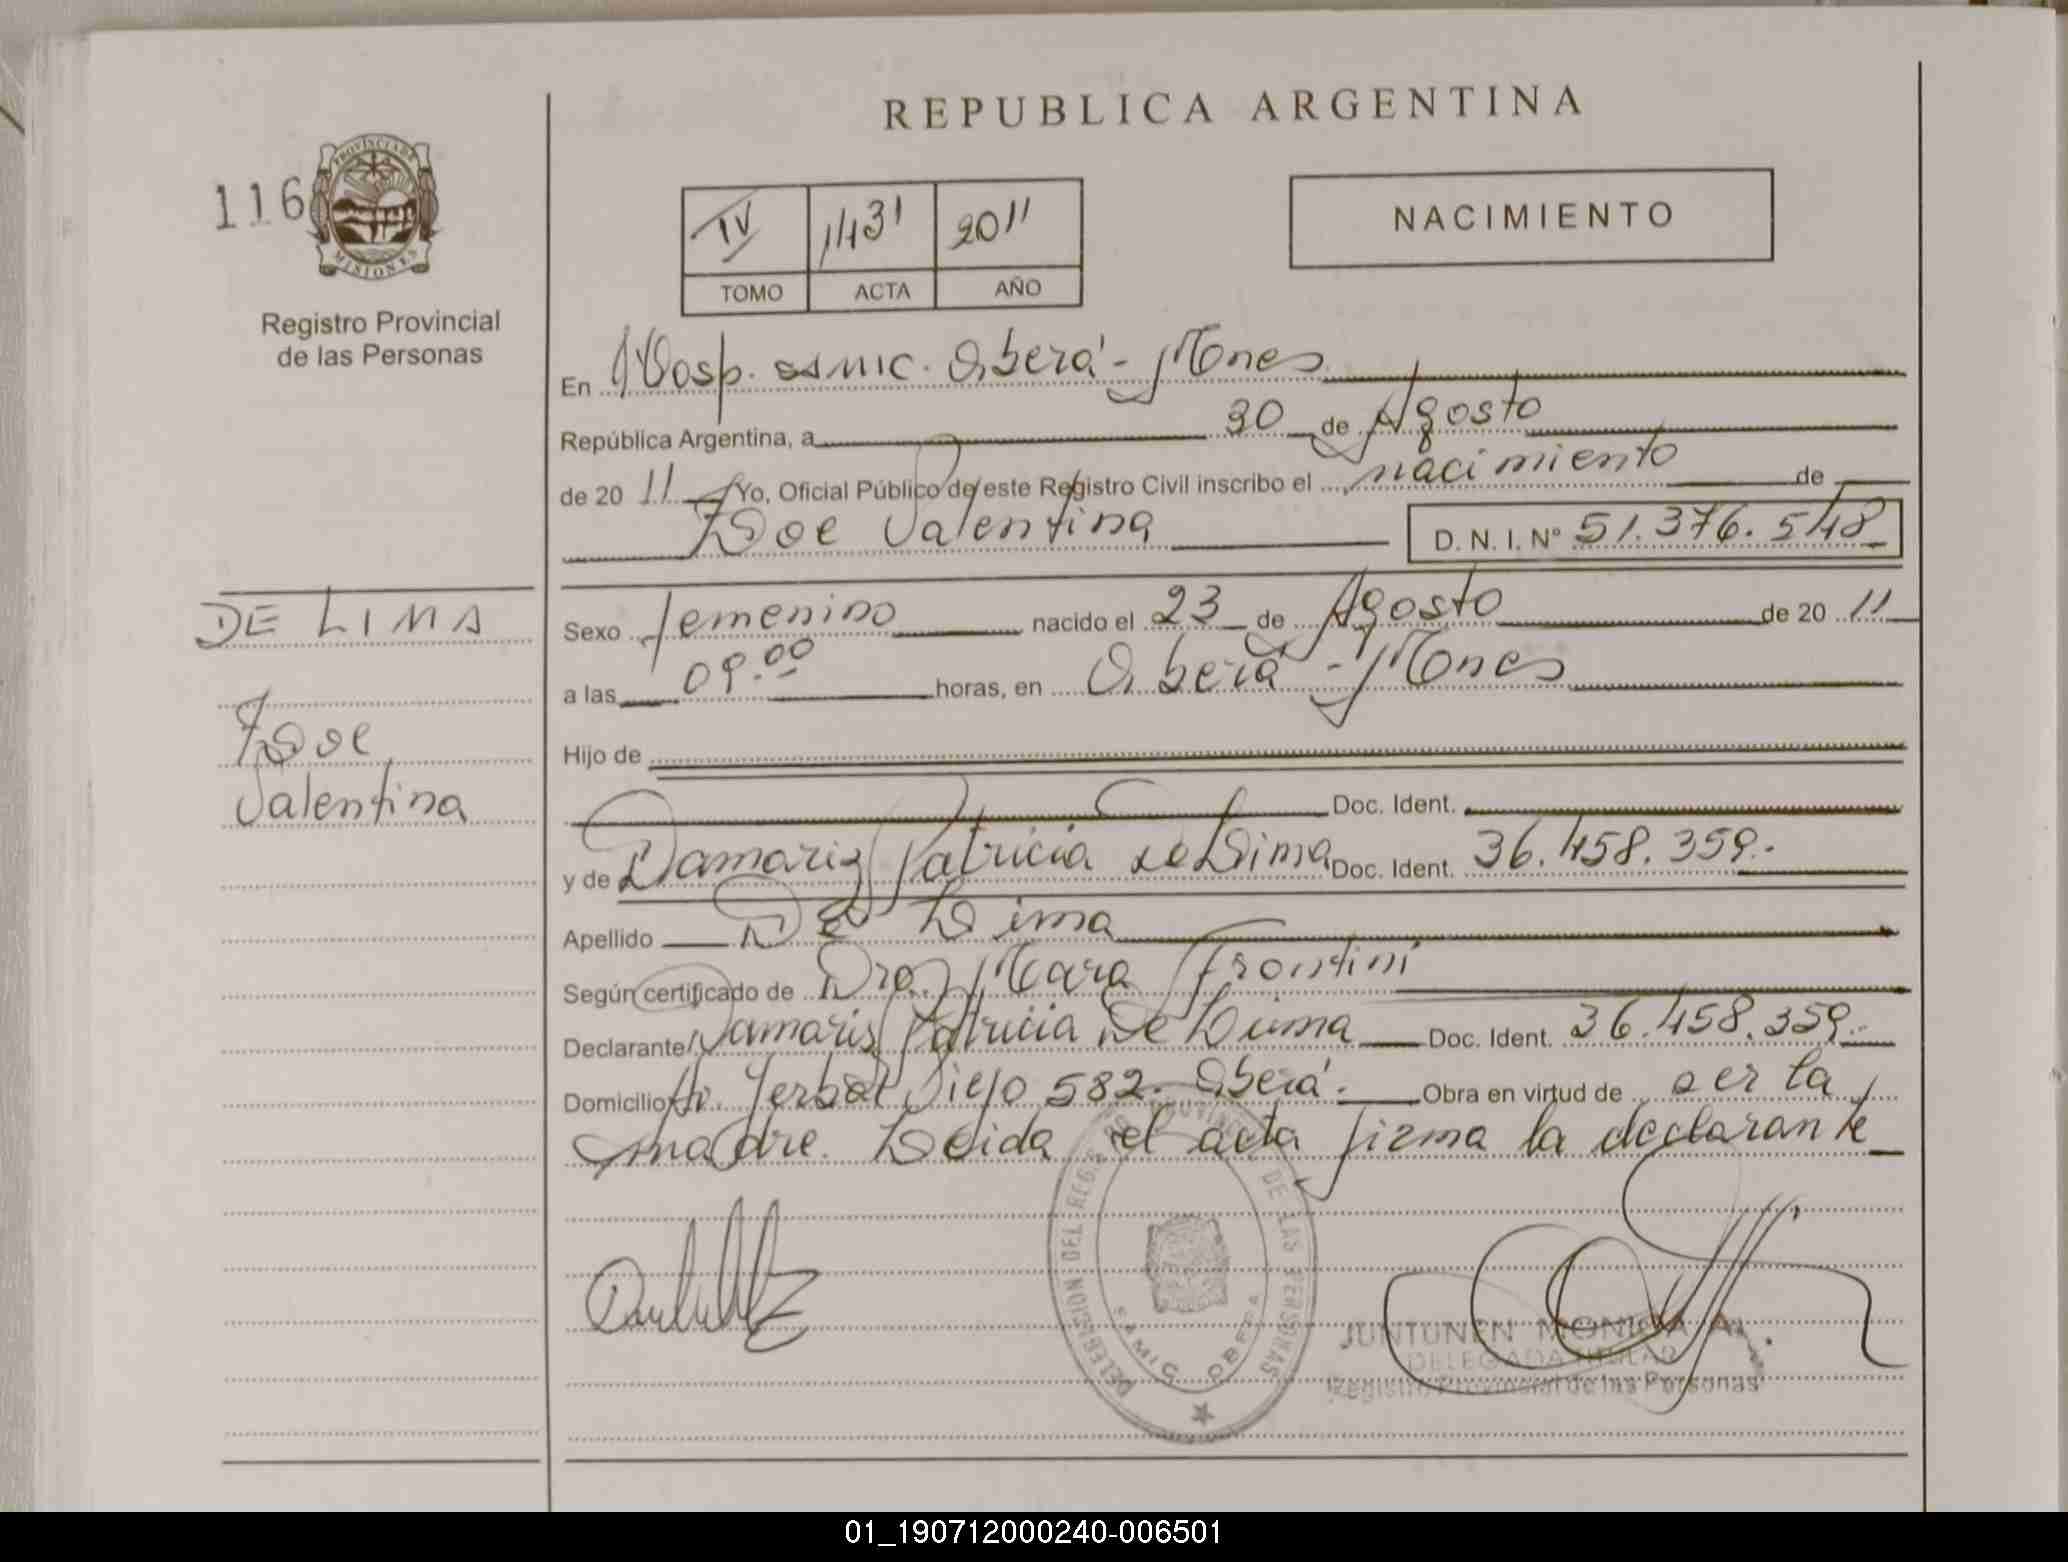 REPUBLICA ARGENTINA
116
PROVINCIA DE
MISIONES
Registro Provincial
de las Personas
IV 1431 2011
TOMO ACTA AÑO
NACIMIENTO
En Hosp. SAMIC. Oberá - Mnes
República Argentina, a 30 de Agosto
de 20 11 Yo, Oficial Público de este Registro Civil inscribo el nacimiento de
Zoe Valentina
D. N. I. Nº 51.376.548
DE LIMA
Zoe
Valentina
Sexo femenino nacido el 23 de Agosto de 20 11
a las 09.00 horas, en Oberá - Mnes
Hijo de
Doc. Ident.
y de Damaris Patricia De Lima Doc. Ident. 36.458.359.-
Apellido De Lima
Según certificado de Dra. Mara Frontini
Declarante Damaris Patricia De Lima Doc. Ident. 36.458.359.-
Domicilio Av. Yerbal Viejo 582. Oberá. Obra en virtud de ser la
madre. Leida el acta firma la declarante
DELEGACION DEL REGISTRO PROVINCIAL DE LAS PERSONAS
SAMIC OBERA
JUNTUNEN MONICA A.
DELEGADA TITULAR
Registro Provincial de las Personas
01_190712000240-006501